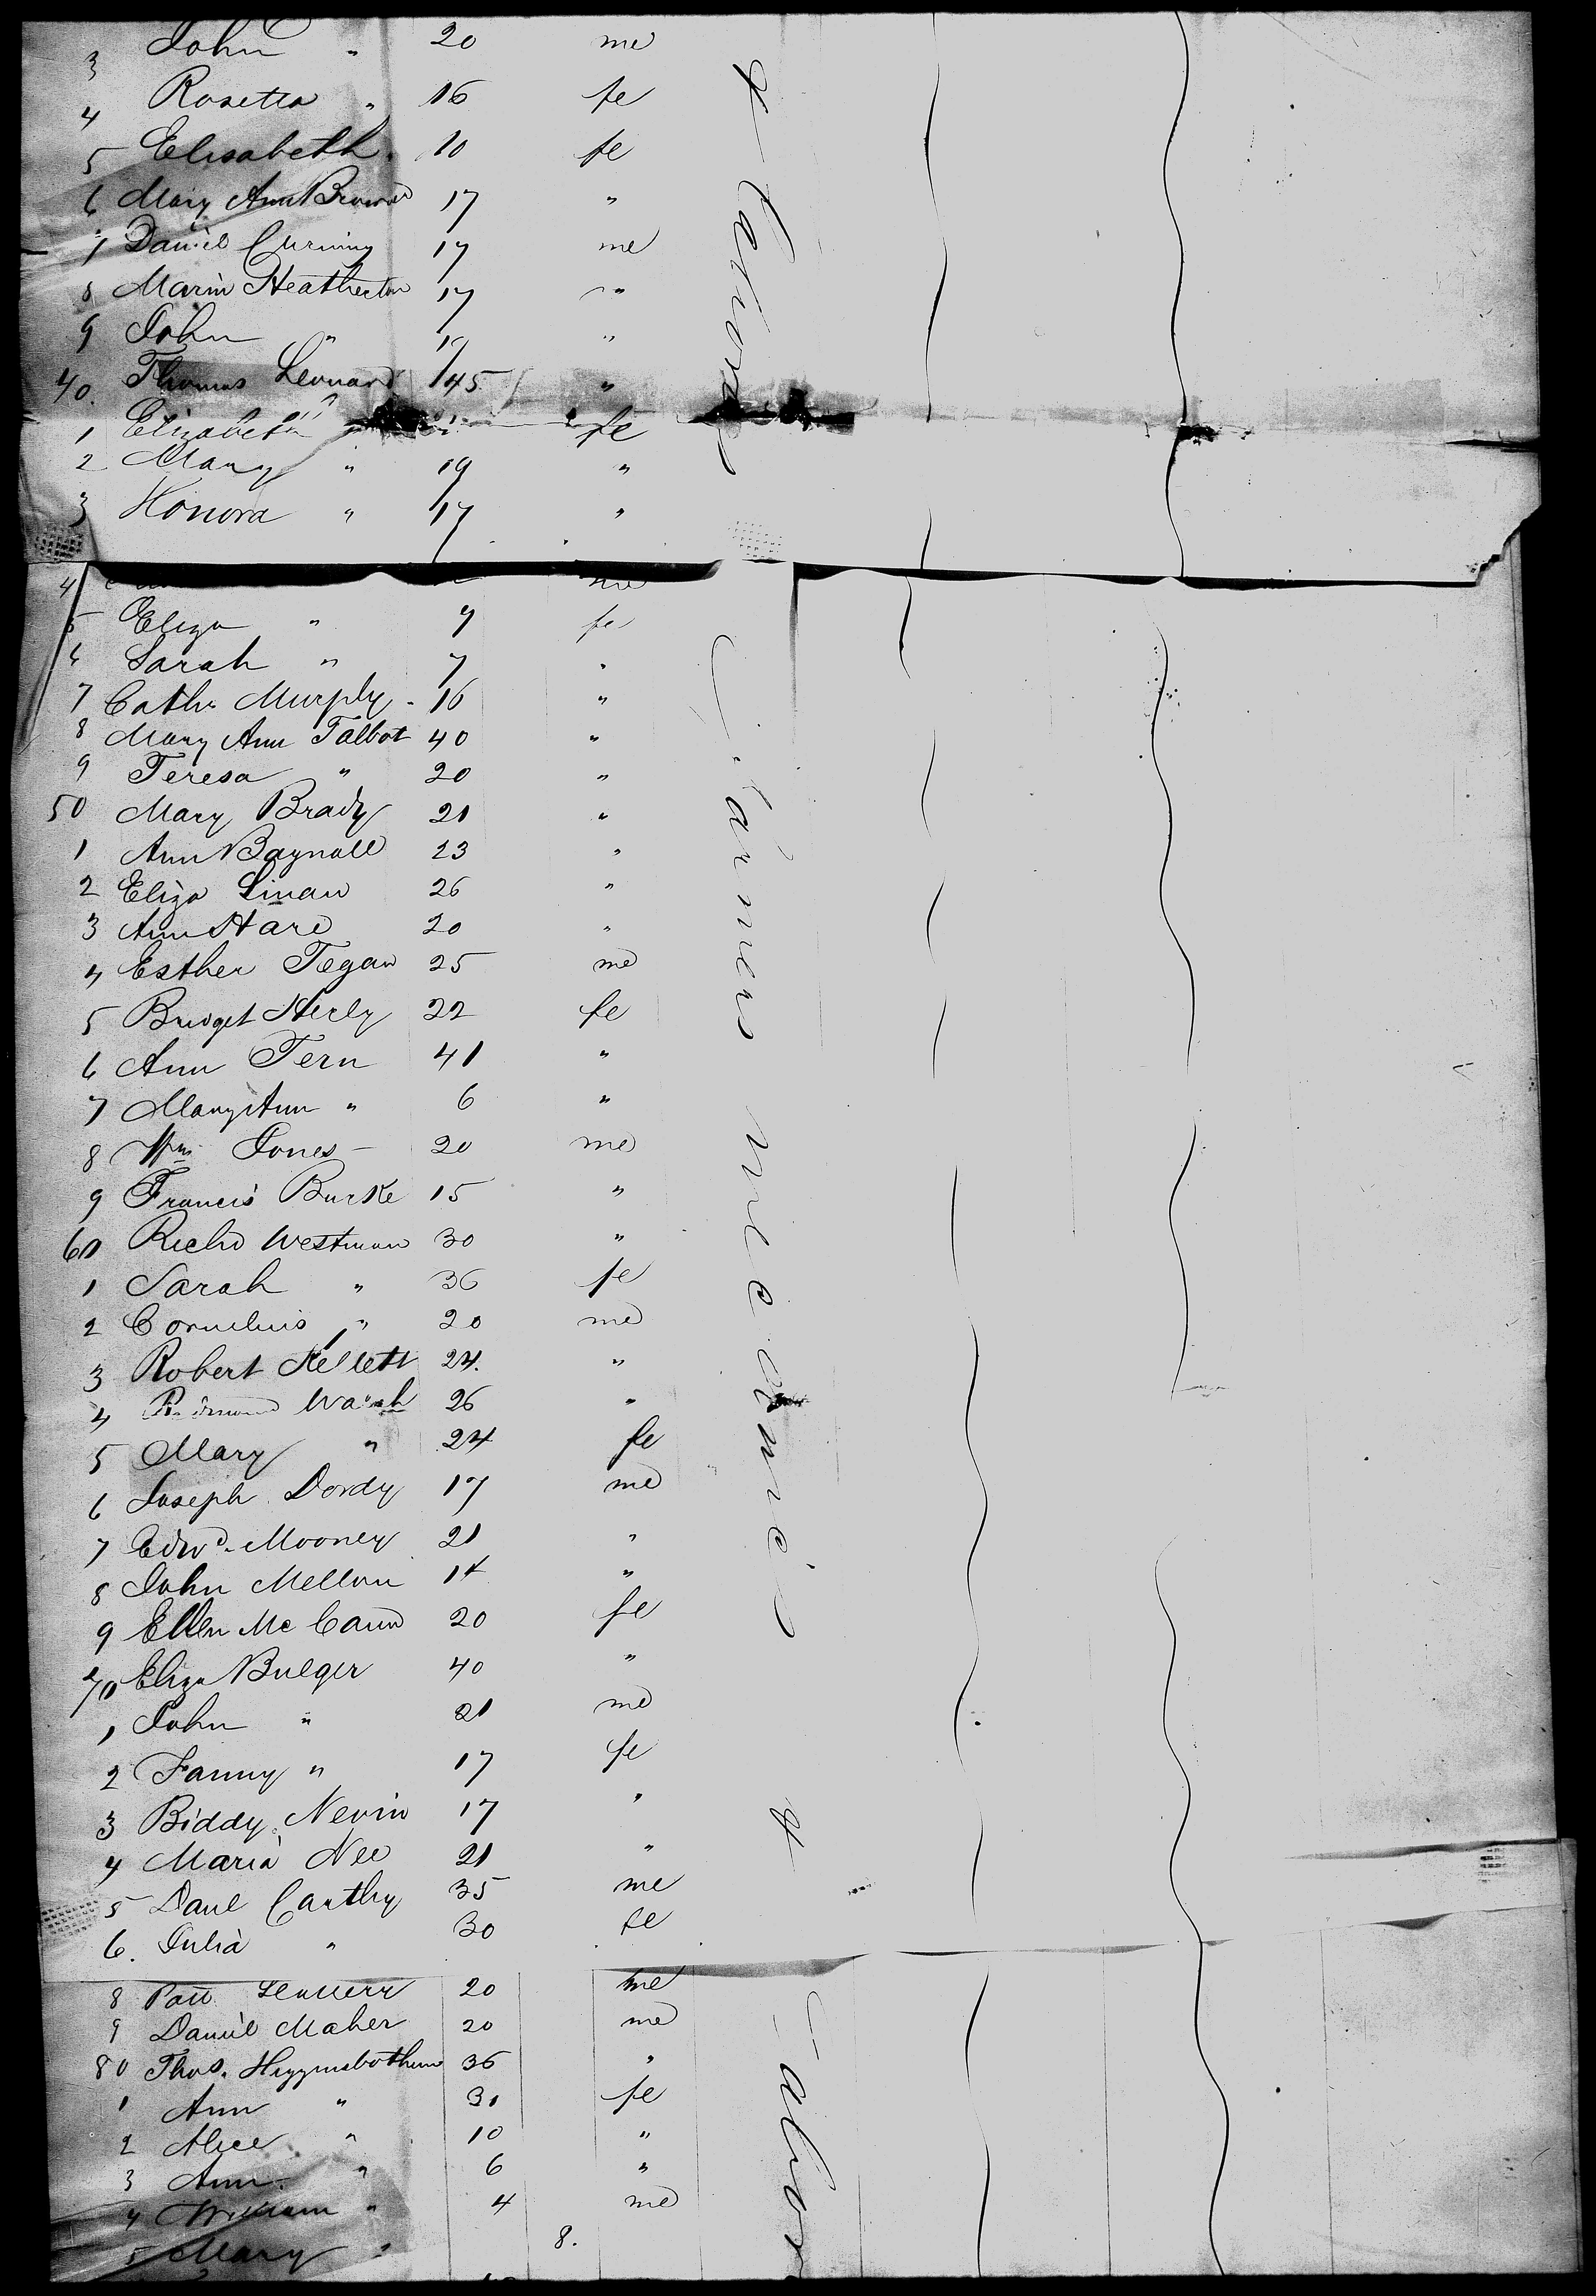 3 John " 20 me
4 Rosetta " 16 fe
5 Elisabeth " 10 fe
6 Mary Ann Brown 17 "
7 Daniel 17 me
8 Heatherton 17 "
9 John " 19 "
40. Thomas Leonard 45 "
1 Elizabeth " fe
2 Mary " 19 "
3 Honora " 17 "
4 me
5 Eliza " 7 fe
6 Sarah " 7 "
7 Cath. Murphy 16 "
8 Mary Ann Talbot 40 "
9 Teresa " 20 "
50 Mary Brady 21 "
1 Ann Bagnall 23 "
2 Eliza Linan 26 "
3 Ann Hare 20 "
4 Esther Tegan 25 me
5 Bridget Herly 22 fe
6 Ann Fern 41 "
7 Mary Ann " 6 "
8 Wm Jones 20 me
9 Francis Burke 15 "
60 Richd Westman 30 "
1 Sarah " 36 fe
2 Cornelius " 20 me
3 Robert Kellett 24. "
4 Redmond Walsh 26 "
5 Mary " 24 fe
6 Joseph Dordy 17 me
7 Edwd. Mooney 21 "
8 John Mellon 14 "
9 Ellen Mc Cann 20 fe
70 Eliza Bulger 40 "
1 John " 21 me
2 Fanny " 17 fe
3 Biddy Nevin 17 "
4 Maria Nee 21 "
5 Danl Carthy 35 me
6. Julia " 30 fe
8 Patt 20 me
9 Daniel Maher 20 me
80 Thos. Higginsbotham 36 "
1 Ann " 31 fe
2 Alice " 10 "
3 Ann " 6 "
4 William " 4 me
5 Mary " 8.
& Labors
Farmers mecanics &
Labors